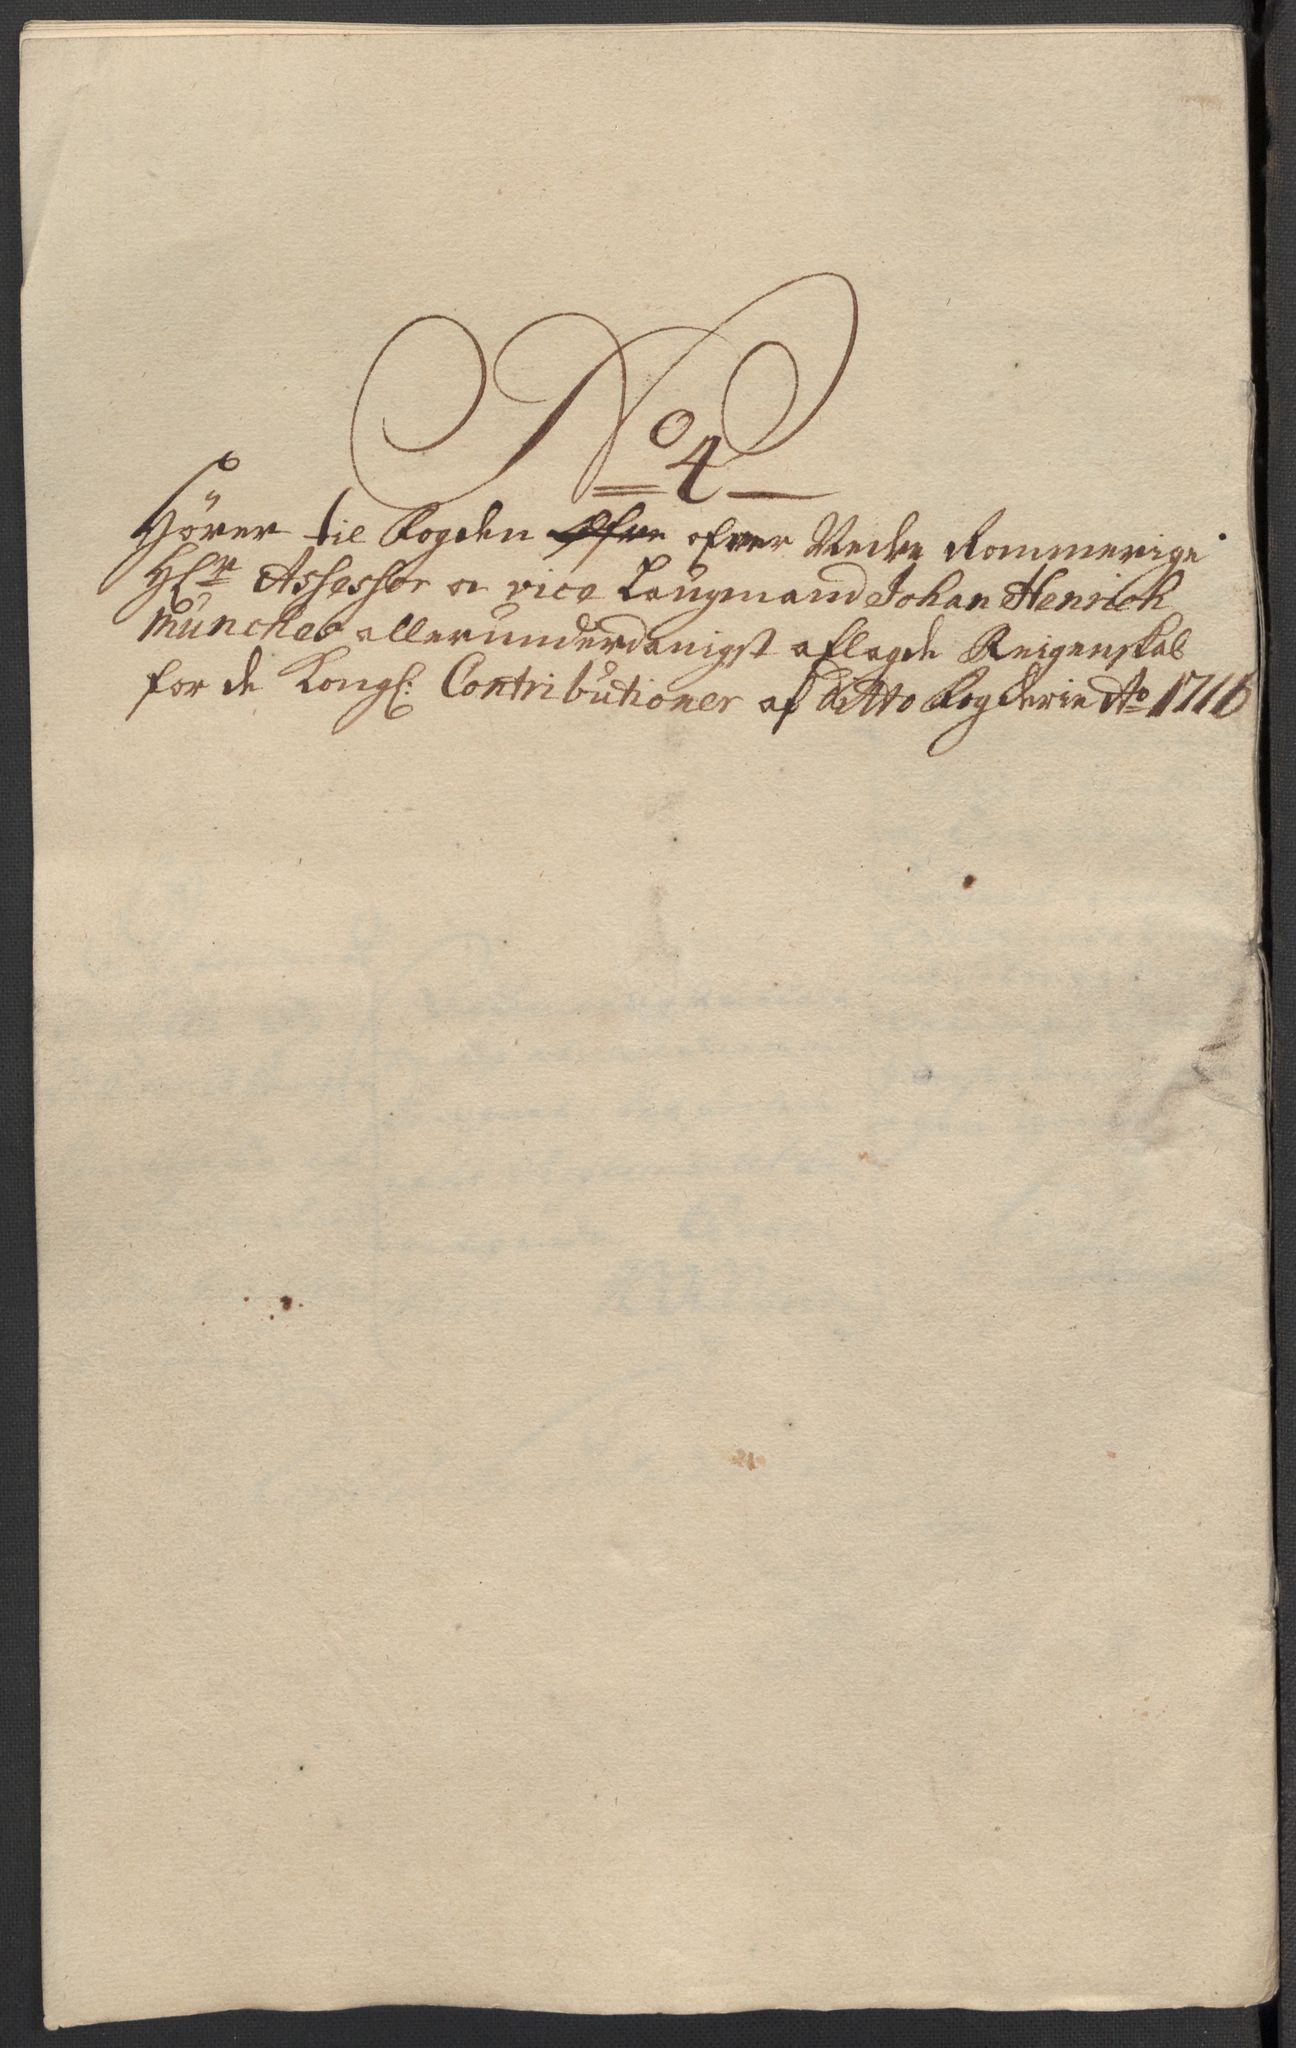 No 4
Hörer til Fogden Øfre ofver Nedre Rommerige
Hr Assessor og vice Laugmand Johan Henrich
Münches allerunderdanigst aflagde Reigenskab
for de Kongl: Contributioner af ditto Fogderie Ao 1716